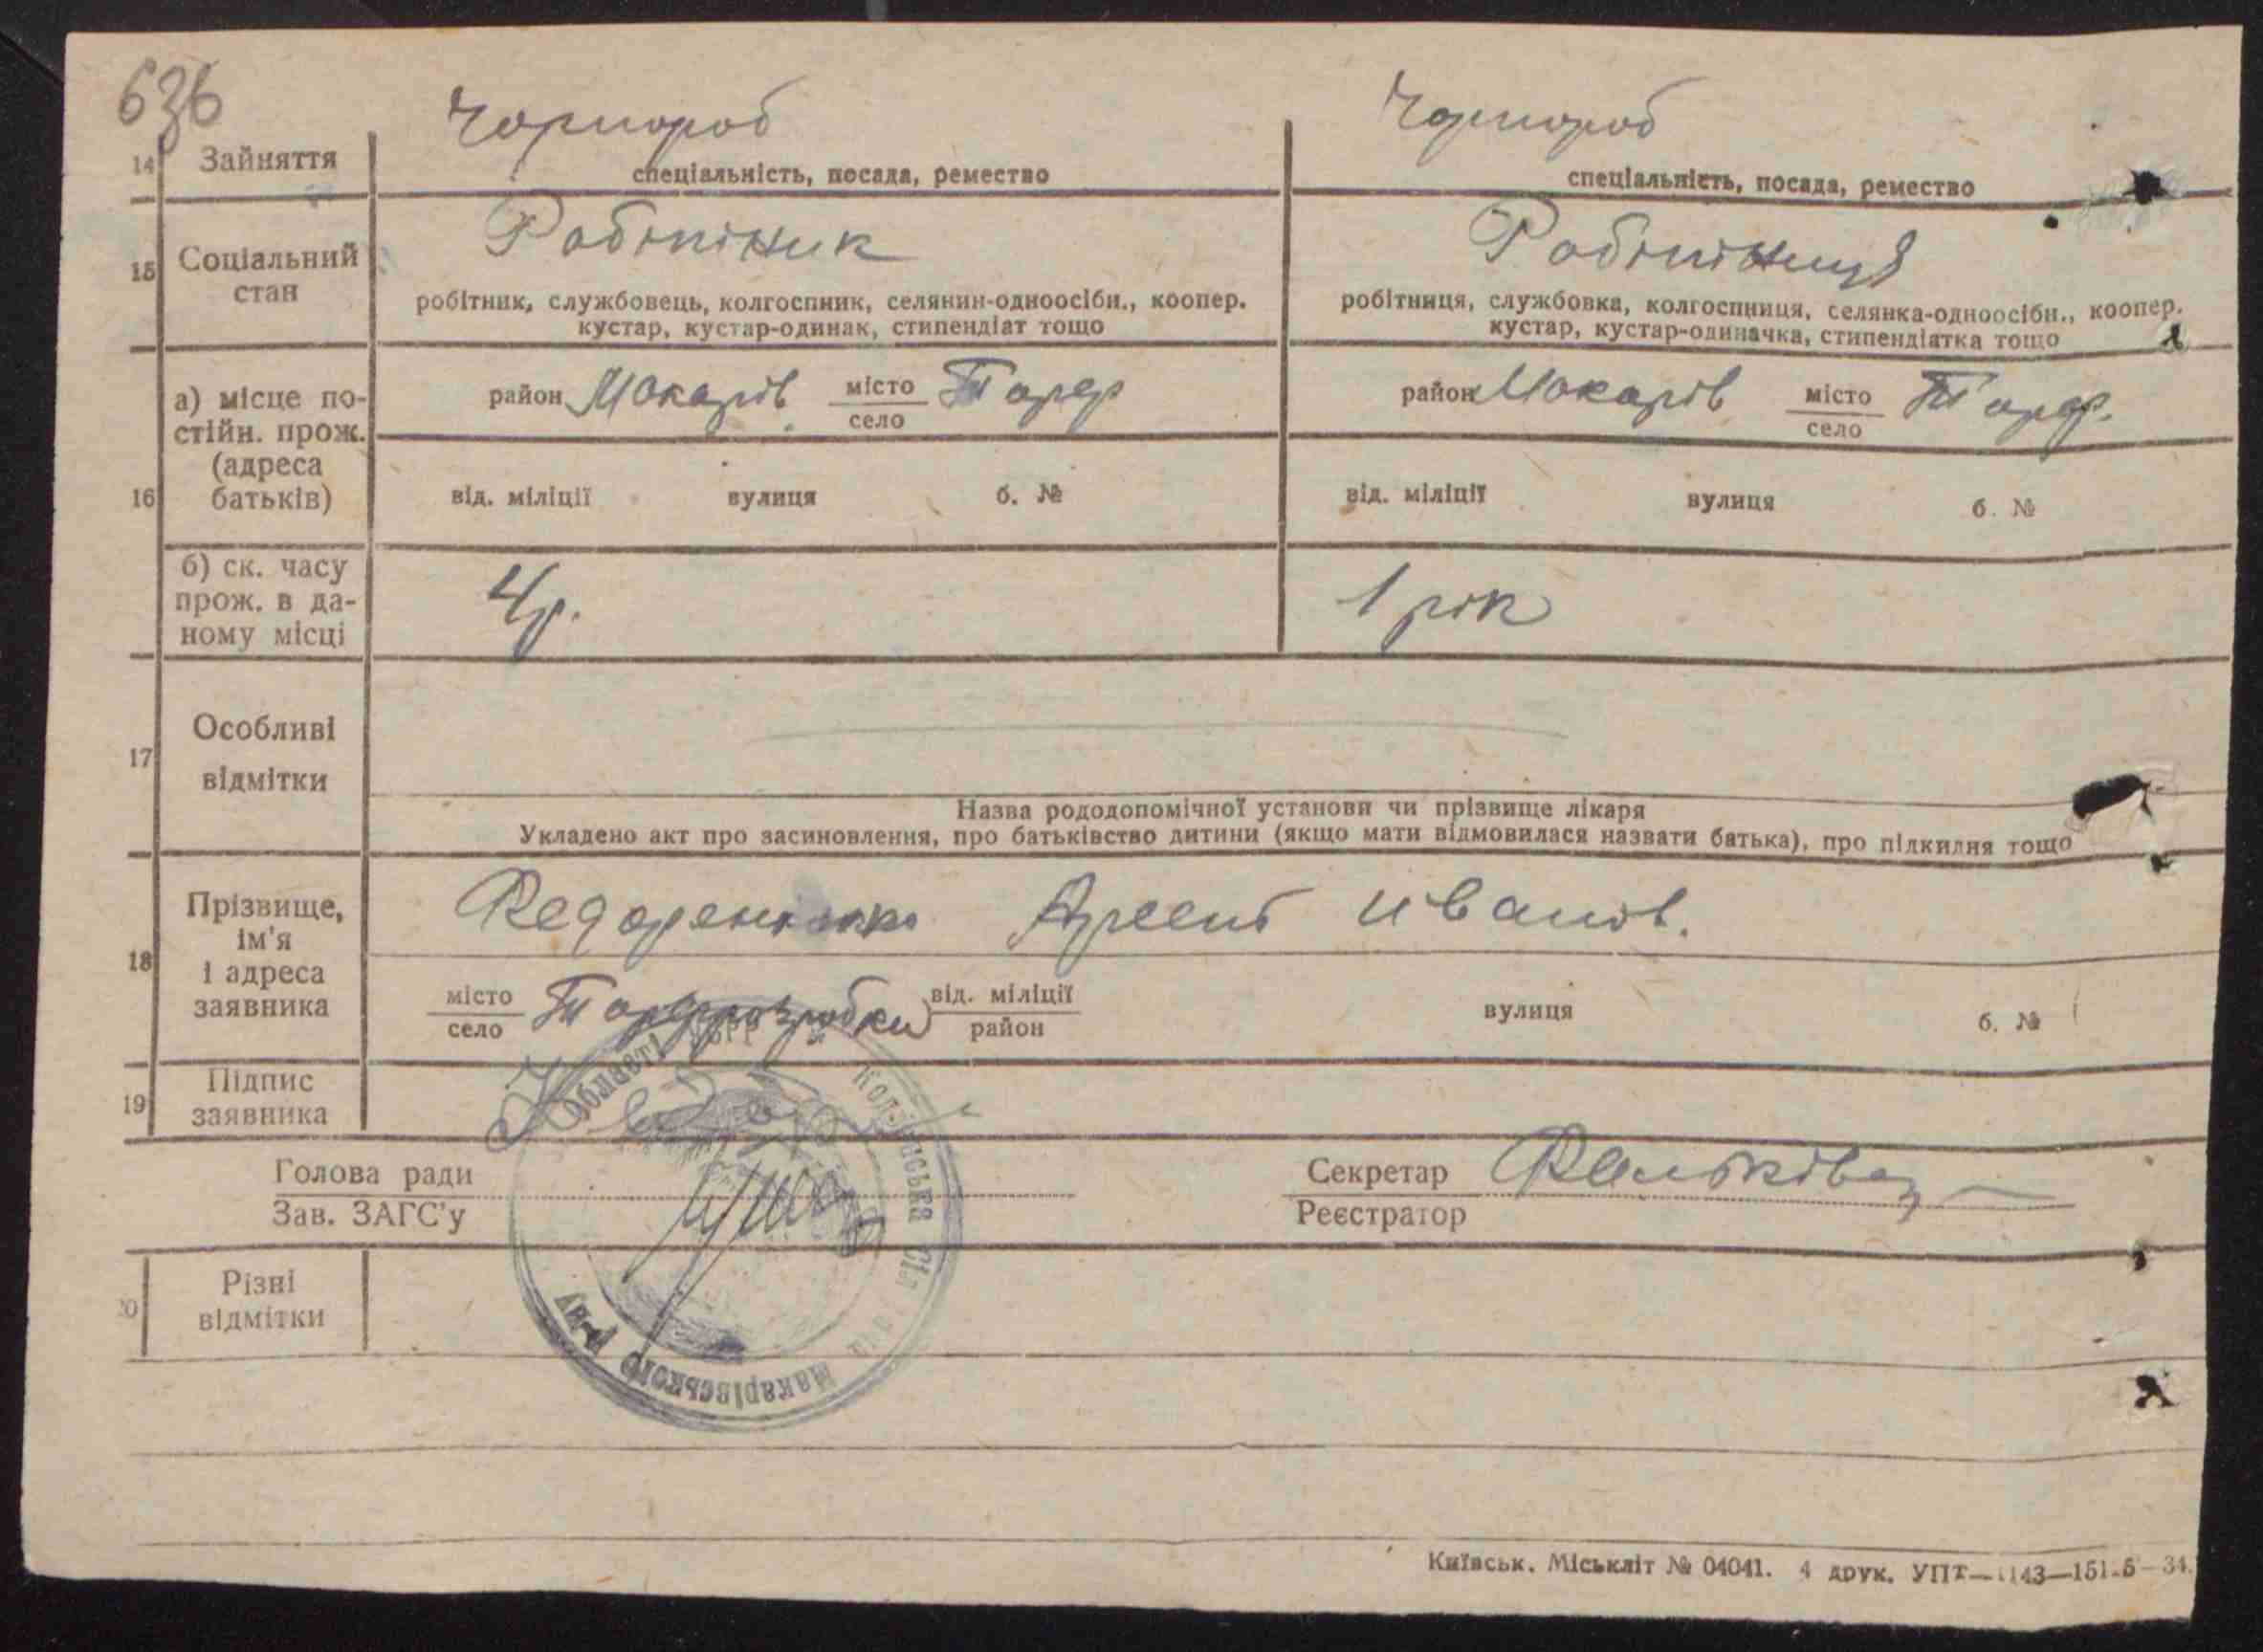 636
14 Зайняття Чорнороб Чорнороб
спеціальність, посада, ремество спеціальність, посада, ремество
15 Соціальний стан Робітнік Робітніця
робітник, службовець, колгоспник, селянин-одноосібн., коопер. робітниця, службовка, колгоспниця, селянка-одноосібн., коопер.
кустар, кустар-одинак, стипендіат тощо кустар, кустар-одиначка, стипендіатка тощо
16 а) місце по-
стійн. прож.
(адреса
батьків)
район Макарів місто село Торф район Макарів місто село Торф.
від. міліції вулиця б. № від. міліції вулиця б. №
б) ск. часу
прож. в да-
ному місці
4 р. 1 рік
17 Особливі
відмітки
Назва рододопомічної установи чи прізвище лікаря
Укладено акт про засиновлення, про батьківство дитини (якщо мати відмовилася назвати батька), про підкидня тощо
18 Прізвище,
ім'я
і адреса
заявника
Иванов.
місто село Торфрозробки від. міліції район вулиця б. №
19 Підпис
заявника
Голова ради Секретар
Зав. ЗАГС'у Реєстратор
20 Різні
відмітки
області Макарівського р-ну
Київськ. Міськліт № 04041. 4 друк. УПТ—1143—151.5—34.